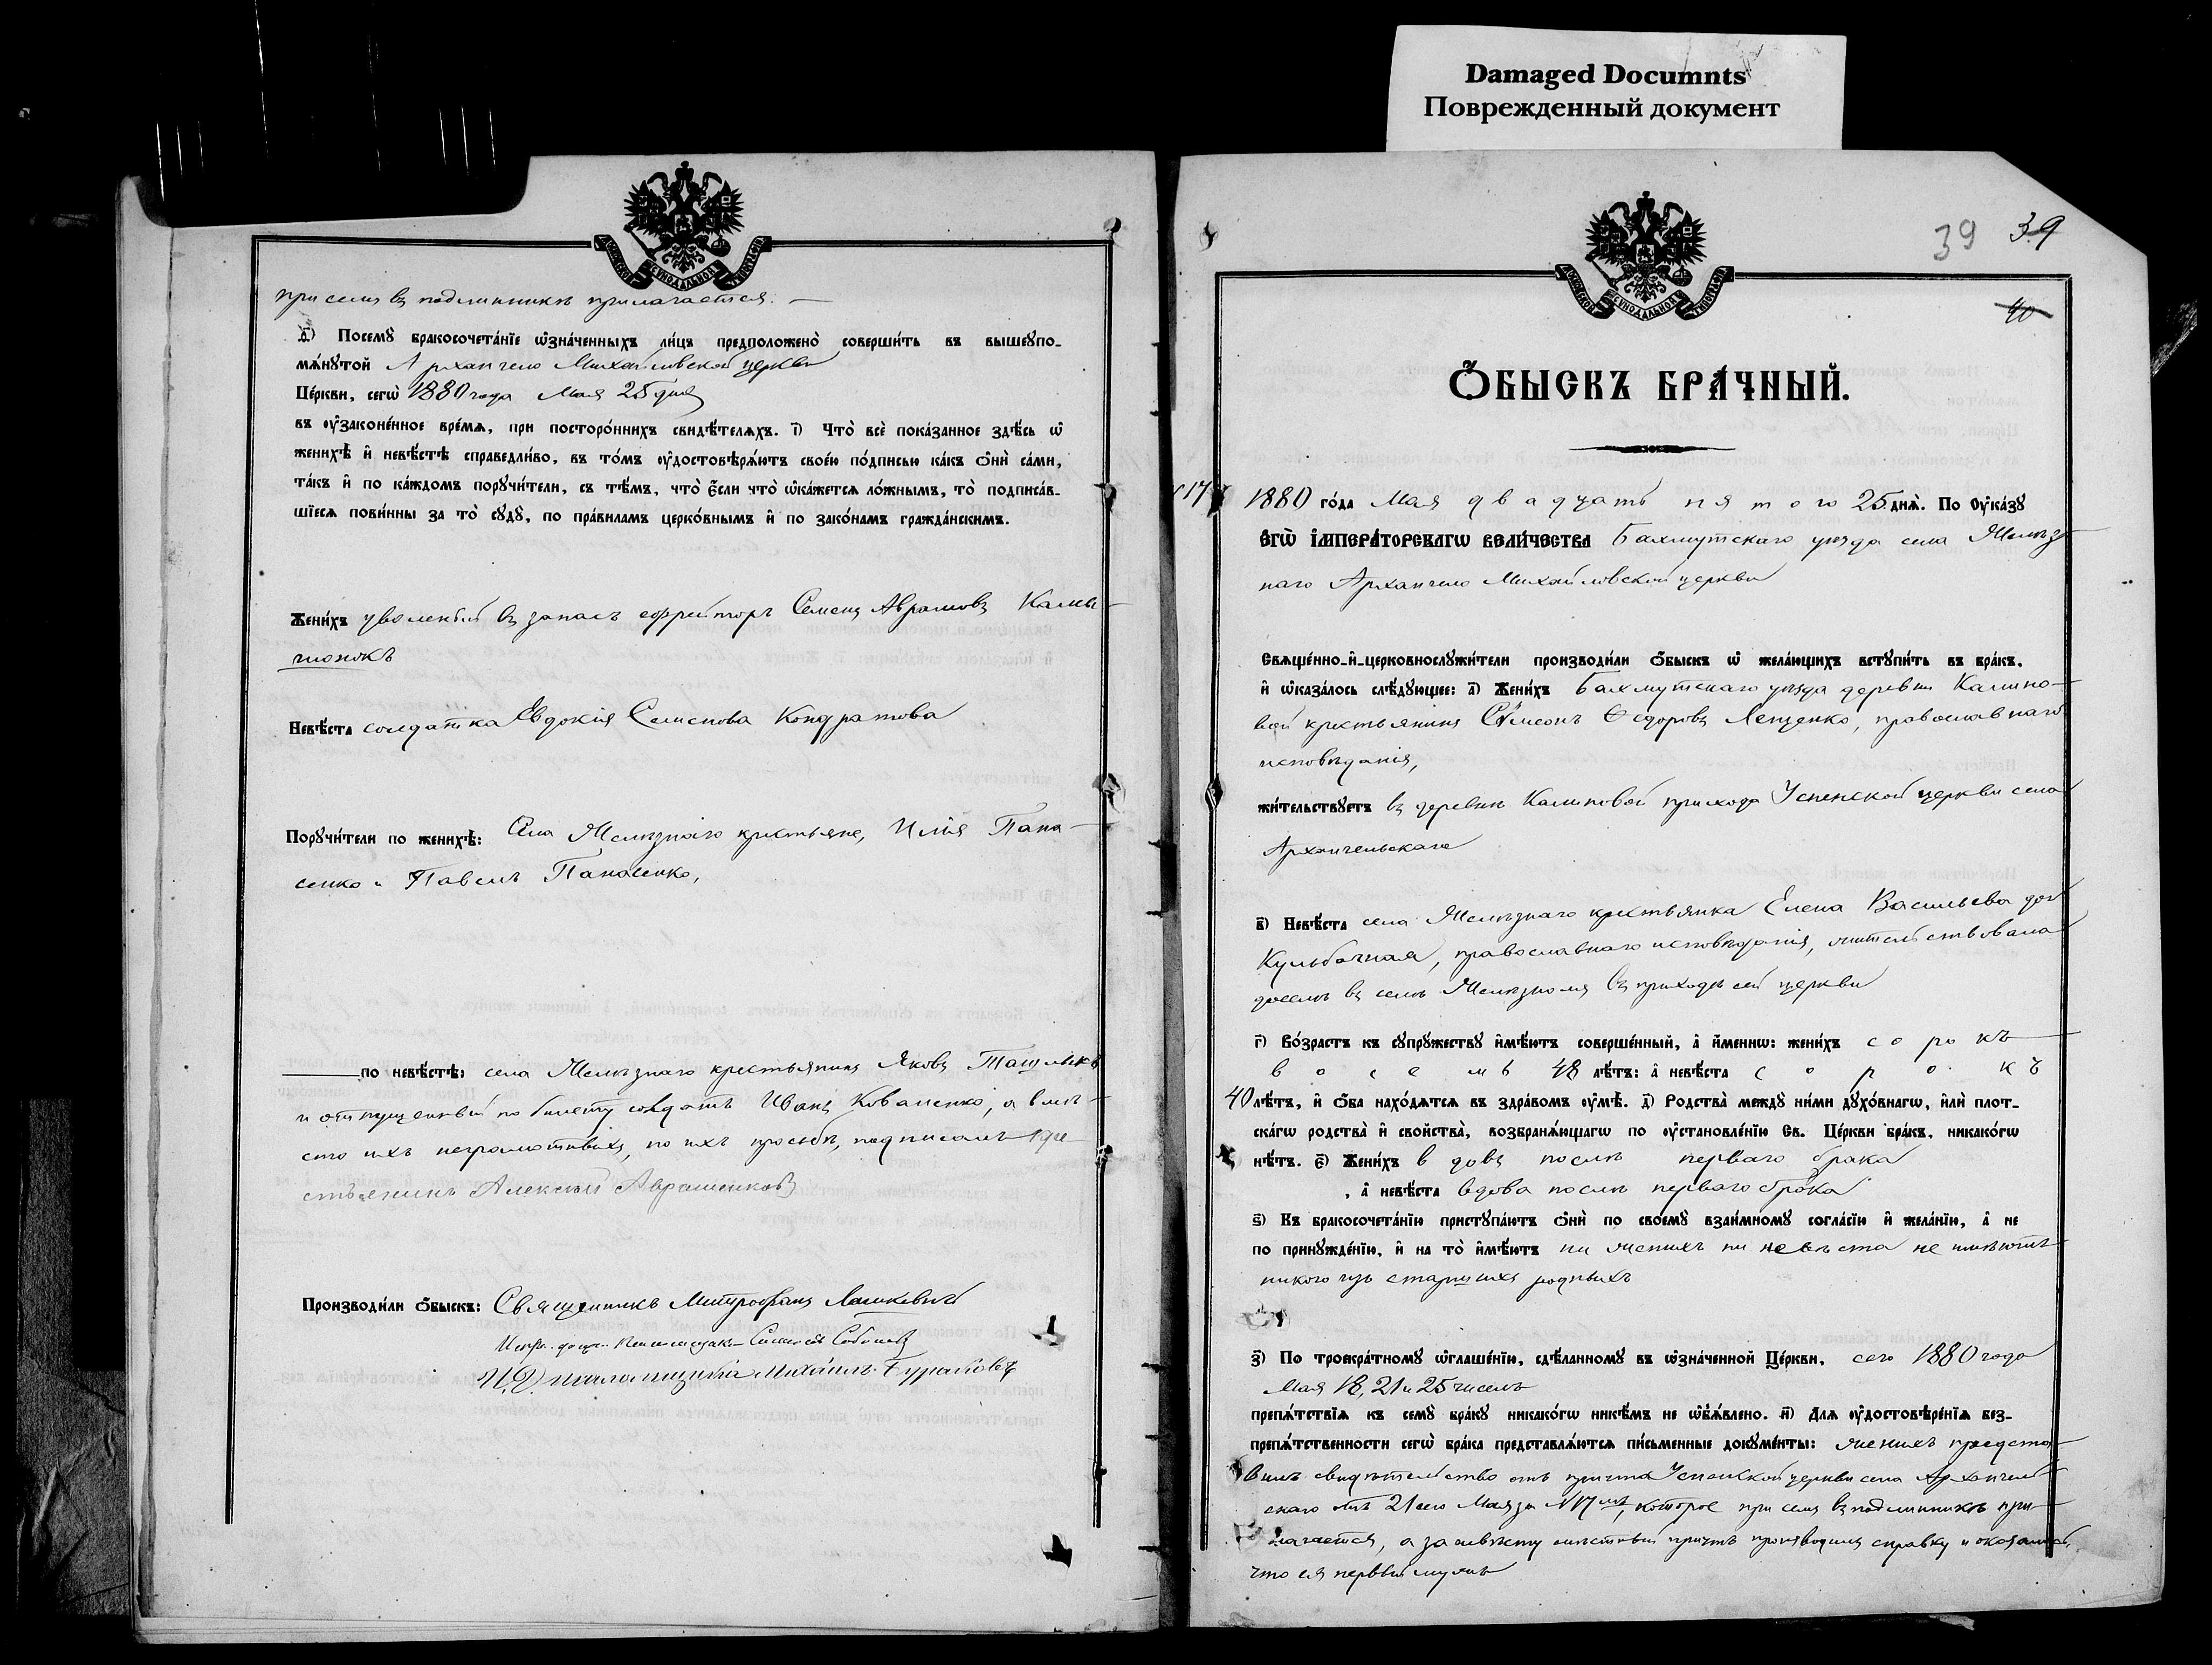 Damaged Documnts
Поврежденный документ
МОСКОВСКОЙ СѴНОДАЛЬНОЙ ТИПОГРАФІИ
при семъ въ подлинникѣ прилагается. —
д҃і) Посемꙋ̀ бракосочета́нїе ѡ҆зна́ченныхъ ли́цъ предположено̀ соверши́ть въ вышеꙋпо-
мѧ́нꙋтой Архангело Михайловской церкви
Це́ркви, сегѡ̀ 1880 года Мая 25 дня
въ ᲂу҆зако́ненное вре́мѧ, при посторо́ннихъ свидѣ́телѧхъ. і҃) Что̀ всѐ пока́занное здѣ́сь ѡ҆
женихѣ̀ и҆ невѣ́стѣ справедли́во, въ то́мъ ᲂу҆достовѣрѧ́ютъ свое́ю по́дписью ка́къ ѻ҆нѝ са́ми,
та́къ и҆ по ка́ждомъ порꙋчи́тели, съ тѣ́мъ, что̀ є҆́сли что̀ ѡ҆ка́жетсѧ ло́жнымъ, то̀ подписа́в-
шїесѧ пови́нны за то̀ сꙋдꙋ̀, по пра́виламъ церко́внымъ и҆ по зако́намъ гражда́нскимъ.
Жени́хъ уволеный въ запасъ ефрейторъ Семенъ Аврамовъ Калы-
Невѣ́ста солдатка Евдокія Семенова Кондратова
Порꙋчи́тели по женихѣ̀: Села Желѣзнаго крестьяне, Илія Пана-
сенко и Павелъ Панасенко,
по невѣ́стѣ: села Желѣзнаго крестьянинъ Яковъ
и отпущенный по билету солдатъ Иванъ Коваленко, а вмѣ-
сто ихъ неграмотныхъ, по ихъ прозьбѣ, подписалъ кре-
стьянинъ Алексѣй Аврашенковъ
Производи́ли ѻ҆́быскъ: Священникъ Митрофанъ Лашкевичъ
И. Д. Михаилъ Бураковъ
39 39
40
МОСКОВСКОЙ СѴНОДАЛЬНОЙ ТИПОГРАФІИ
Ѻ҆БЫСКЪ БРА́ЧНЫЙ.
№ 17
1880 го́да Мая двадцать пятого 25 днѧ̀. По Оу҆ка́зꙋ
Є҆ГѠ̀ І҆МПЕРА́ТОРСКАГѠ ВЕЛИ́ЧЕСТВА Бахмутскаго уѣзда села Желѣз-
наго Архангело Михайловской церкви
Свѧще́нно-и҆-церковнослꙋжи́тели производи́ли ѻ҆́быскъ ѡ҆ жела́ющихъ встꙋпи́ть въ бра́къ.
и҆ ѡ҆каза́лось слѣ́дꙋющее: а҃) Жени́хъ Бахмутскаго уѣзда деревни Калино-
вой крестьянинъ Сѵмеонъ Ѳедоровъ Лещенко, православнаго
исповѣданія,
жи́тельствꙋетъ въ деревнѣ Калиновой прихода Успенской церкви села
Архангельскаго
в҃) Невѣ́ста села Желѣзнаго крестьянка Елена Васильева доч
Кульбачная, православнаго исповѣданія, жительствовала
доселѣ въ селѣ Желѣзномъ въ приходѣ сей церкви
г҃) Во́зрастъ къ сꙋпрꙋ́жествꙋ и҆мѣ́ютъ соверше́нный, а҆ и҆́меннѡ: жени́хъ сорокъ
восемь 48 лѣ́тъ: а҆ невѣ́ста сорокъ
40 лѣ́тъ, и҆ ѻ҆́ба нахо́дѧтсѧ въ здра́вомъ ᲂу҆мѣ̀. д҃) Родства̀ междꙋ ни́ми дꙋхо́внагѡ, и҆лѝ плот-
ска́гѡ родства̀ и҆ сво́йства̀, возбранѧ́ющагѡ по ᲂу҆становле́нїю Св. Це́ркви бра́къ, никако́гѡ
нѣ́тъ. є҃) Жени́хъ вдовъ послѣ перваго брака
, а҆ невѣ́ста вдова послѣ перваго брака
ѕ҃) Къ бракосочета́нїю пристꙋпа́ютъ ѻ҆нѝ по своемꙋ̀ взаи́мномꙋ согла́сїю и҆ жела́нїю, а҆ не
по принꙋжде́нїю, и҆ на то̀ и҆мѣ́ютъ ни женихъ ни невѣста не имѣютъ
никого изъ старшихъ родныхъ
з҃) По троекра́тномꙋ ѡ҆глаше́нїю, сдѣ́ланномꙋ въ ѡ҆зна́ченной Це́ркви, сего 1880 года
Мая 18, 21 и 25 числъ
препѧ́тствїѧ къ семꙋ̀ бра́кꙋ никако́гѡ никѣ́мъ не ѡ҆бъѧ́влено. и҃) Длѧ ᲂу҆достовѣре́нїѧ без-
препѧ́тственности сегѡ̀ бра́ка представлѧ́ютсѧ пи́сьменные докꙋме́нты: женихъ предста-
вилъ свидѣтельство отъ причта Успенской церкви села Архангель-
скаго отъ 21 сего Мая за № 17мъ, которое при семъ въ подлинникѣ при-
лагается, а за невѣсту мѣстный причтъ производилъ справку и оказалось,
что ея первый мужъ